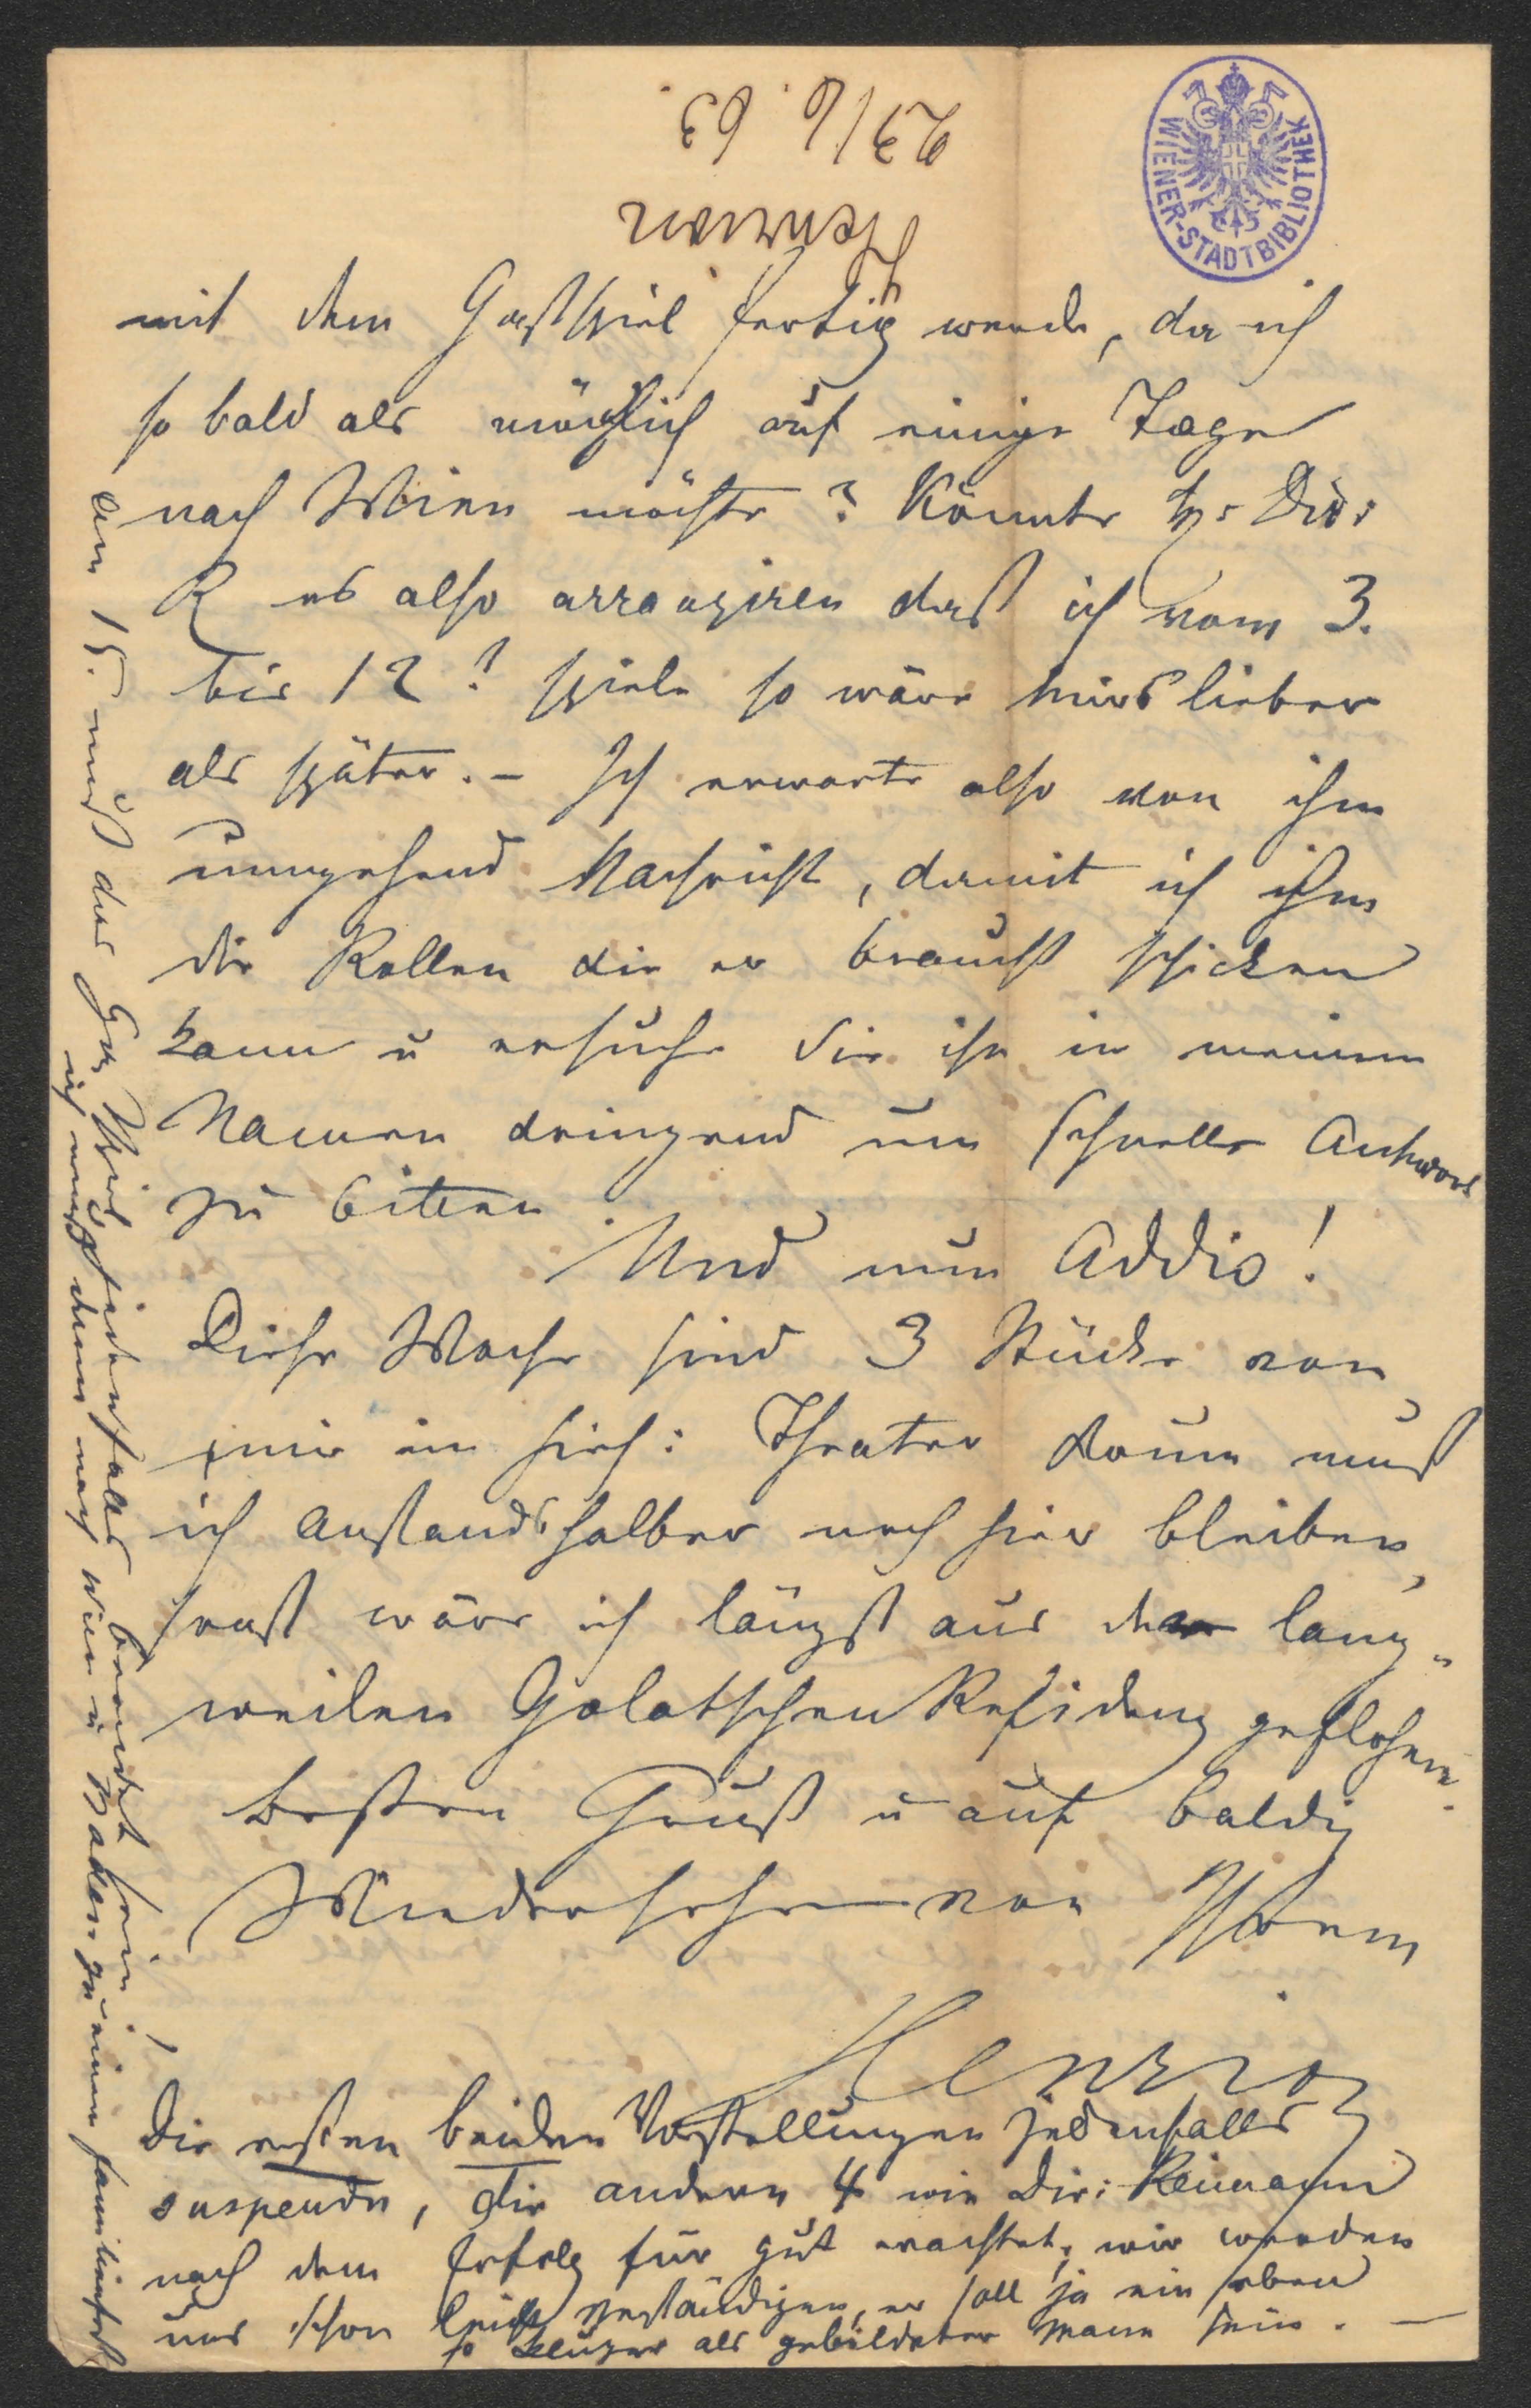 23/6. 63.
WIENER-STADTBIBLIOTHEK
mit dem Gastspiel fertig werde, da ich
so bald als möglich auf einige Tage
nach Wien möchte? Könnte Hr: Dir:
R es also arrangiren daß ich vom 3.
bis 12? spiele so wäre mirs lieber
als später. – Ich erwarte also von ihm
umgehend Nachricht, damit ich ihm
die Rollen die er braucht schicken
kann u ersuche Sie ihn in meinem
Namen dringend um schnelle Antwort
zu bitten
Und nun Addio!
Diese Woche sind 3 Stücke von
mir im hies: Theater drum muß
ich anstandshalber noch hier bleiben,
sonst wäre ich längst aus der lang„
weilen Golatschen Residenz geflohen.
Besten Gruß u auf baldig
Wiedersehen von Ihrem
Die ersten beiden Vorstellungen jedenfalls
suspendu, die andern 4 wie Dir: Reimann
nach dem Erfolg für gut erachtet, wir werden
uns schon leicht verständigen, er soll ja ein eben
so kluger als gebildeter Mann sein. –
Am 15. muß das Gastspiel jedenfalls beendet sein,
ich muß dann nach Wien u Baden zu einem Familienfest